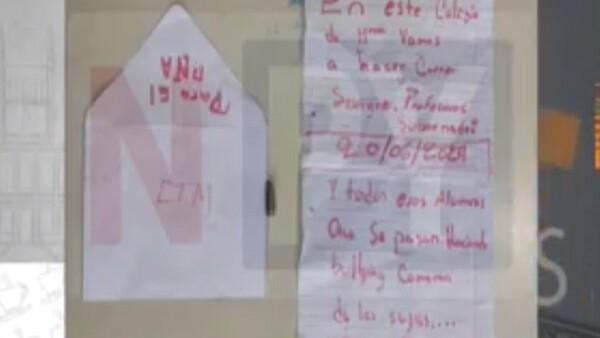 Para El
ETM
En este Colegio
de Vamos
a haser Correr
Sangre, Profesores
20/06/2024
Y todos esos Alumnos
Que Se pasan Haciendo
bullying
de las suyas....